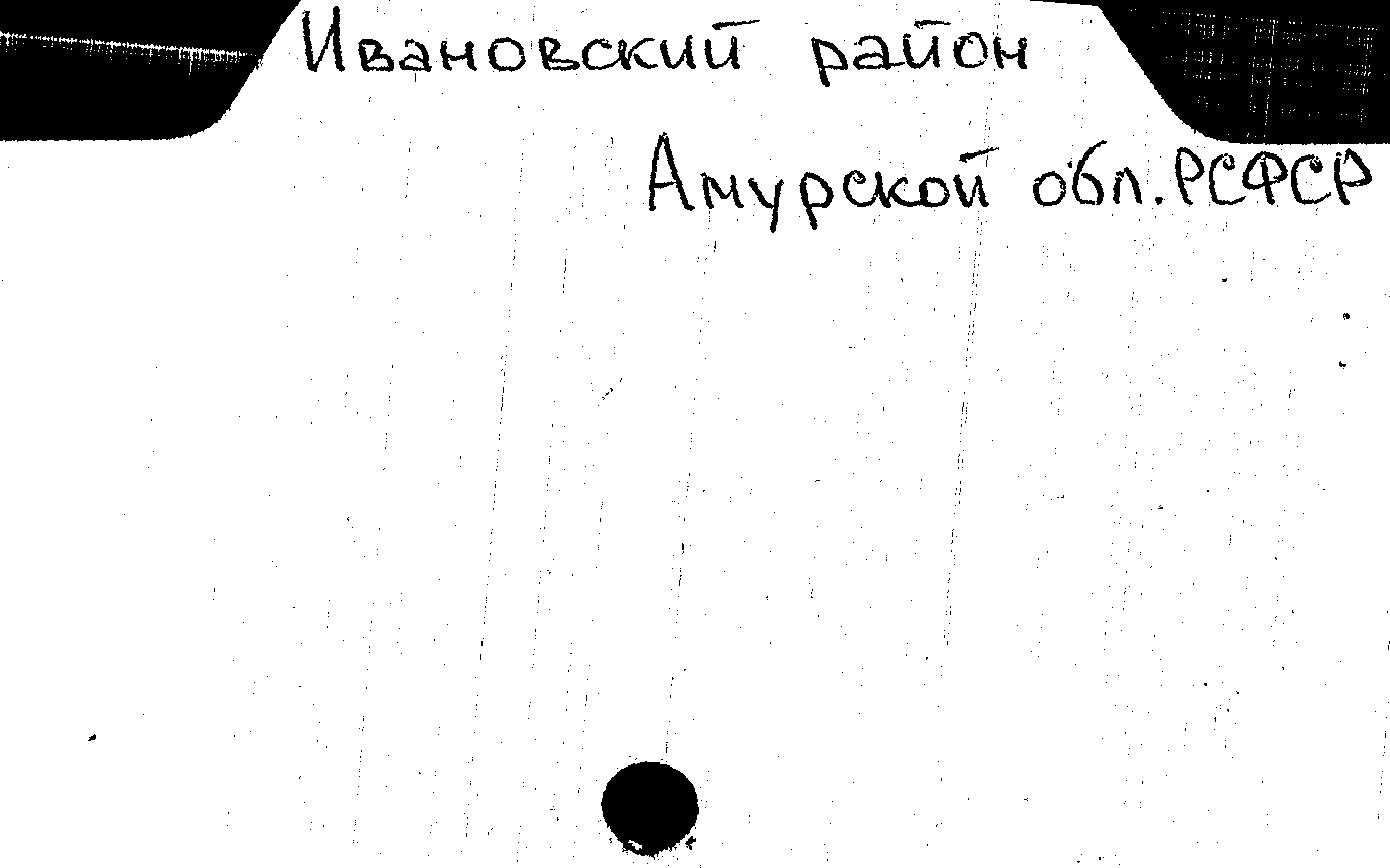 Ивановский район
Амурской обл. РСФСР